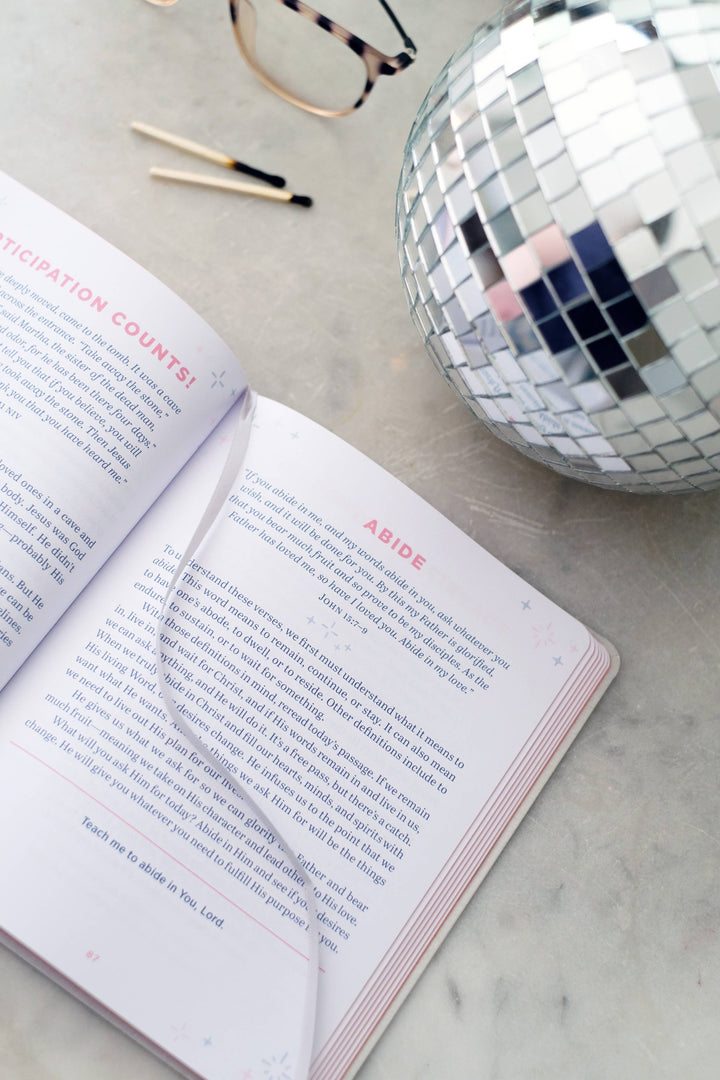 RTICIPATION COUNTS!
deeply moved, came to the tomb. It was a cave
across the entrance. "Take away the stone,"
said Martha, the sister of the dead man,
odor, for he has been there four days."
tell you that if you believe, you will
took away the stone. Then Jesus
k you that you have heard me."
NIV
loved ones in a cave and
body. Jesus was God
Himself. He didn't
—probably His
ans. But He
e can be
elines,
ries
ABIDE
"If you abide in me, and my words abide in you, ask whatever you
wish, and it will be done for you. By this my Father is glorified,
that you bear much fruit and so prove to be my disciples. As the
Father has loved me, so have I loved you. Abide in my love."
JOHN 15:7–9
To understand these verses, we first must understand what it means to
abide. This word means to remain, continue, or stay. It can also mean
to have one's abode, to dwell, or to reside. Other definitions include to
endure, to sustain, or to wait for something.
With those definitions in mind, reread today's passage. If we remain
in, live in, and wait for Christ, and if His words remain in and live in us,
we can ask anything, and He will do it. It's a free pass, but there's a catch.
When we truly abide in Christ and fill our hearts, minds, and spirits with
His living Word, our desires change. He infuses us to the point that we
want what He wants. The things we ask Him for will be the things
we need to live out His plan for our lives.
He gives us what we ask for so we can glorify the Father and bear
much fruit—meaning we take on His character and lead others to His love.
What will you ask Him for today? Abide in Him and see if your desires
change. He will give you whatever you need to fulfill His purpose for you.
Teach me to abide in You, Lord.
87